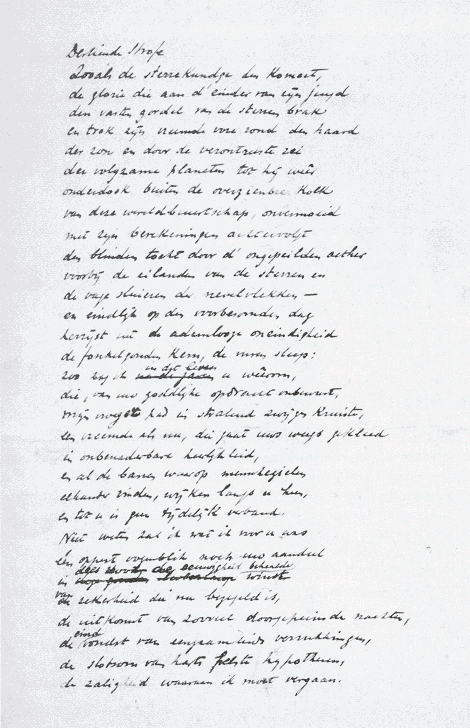 Dertiende Strofe
Zooals de sterrekundge den komeet,
de glorie die aan d' einder van zijn jeugd
den vasten gordel van de sterren brak
en trok zijn vreemde vore rond den haard
der zon en door de verontruste rei
der volgzame planeten tot hij weêr
onderdook buiten de overzienbre kolk
van deze wereldbuurtschap, onvermoeid
met zijn berekeningen achtervolgt
den blinden tocht door d' ongepeilden aether
voorbij de eilanden van de sterren en
de vage sluieren der nevelvlekken —
en eindlijk op den voorbesomden dag
herrijst uit de ademlooze oneindigheid
de fonkelgouden kern, de sleep:
zoo zag ik in dit leven u wêerom,
die, van uw goddlijke opdracht onbewust,
mijn pad in stralend zwijgen kruiste,
een vreemde als nu, die gaat uws weegs gekleed
in onbenaderbare heerlijkheid,
en al de banen waarop menschezielen
elkander vinden, wijken langs u heen,
en tot u is geen tijdelijk verband.
Niet weten zal ik wat ik voor u was
Een oogenblik noch uw aandeel
is deze eeuwigheid
van zekerheid die nu bezegeld is,
de uitkomst van zooveel doorgepeinsde nachten,
de eindvondst van eenzaamheids verrukkingen,
de slotsom van harts hypothesen,
de zaligheid waaraan ik moet vergaan.